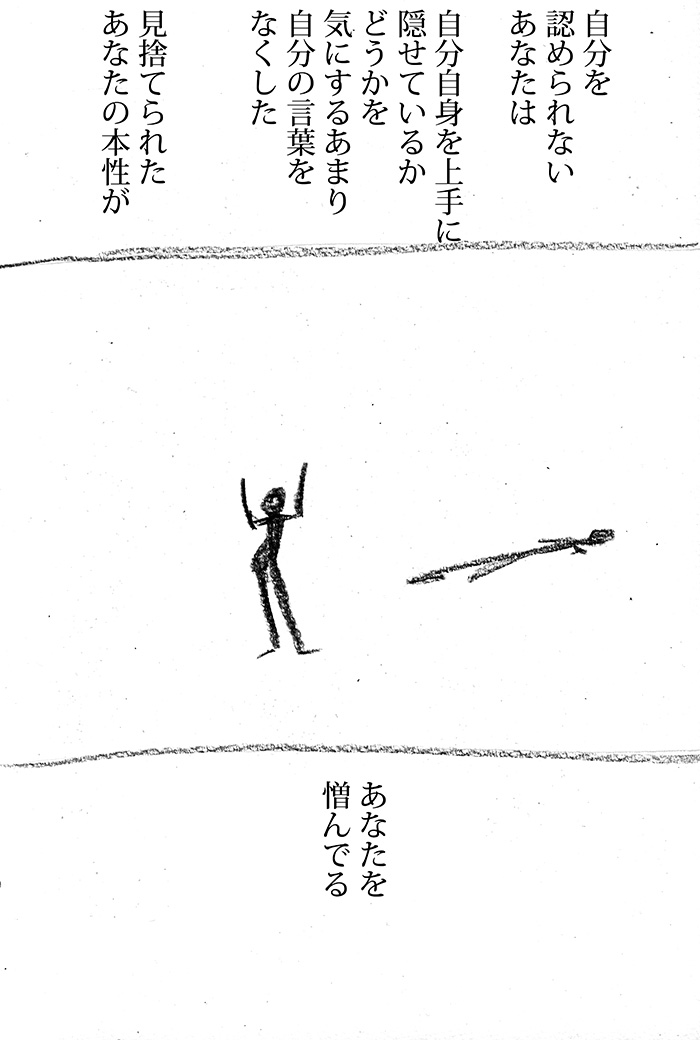 自分を
認められない
あなたは
自分自身を上手に
隠せているか
どうかを
気にするあまり
自分の言葉を
なくした
見捨てられた
あなたの本性が
あなたを
憎んでる